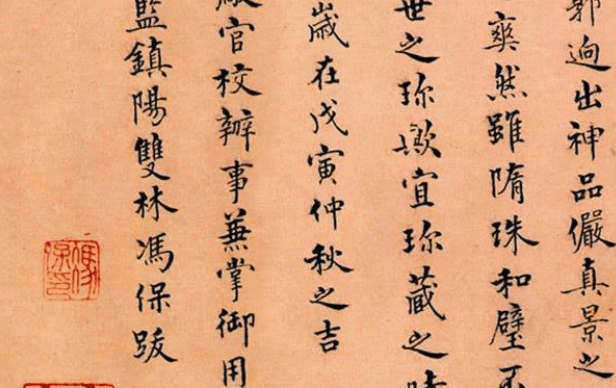 郭逈出神品儼真景之
爽然雖隋珠和璧不
世之珎歟宜珎藏之時
歲在戊寅仲秋之吉
廠官校辦事兼掌御用
監鎮陽雙林馮保跋